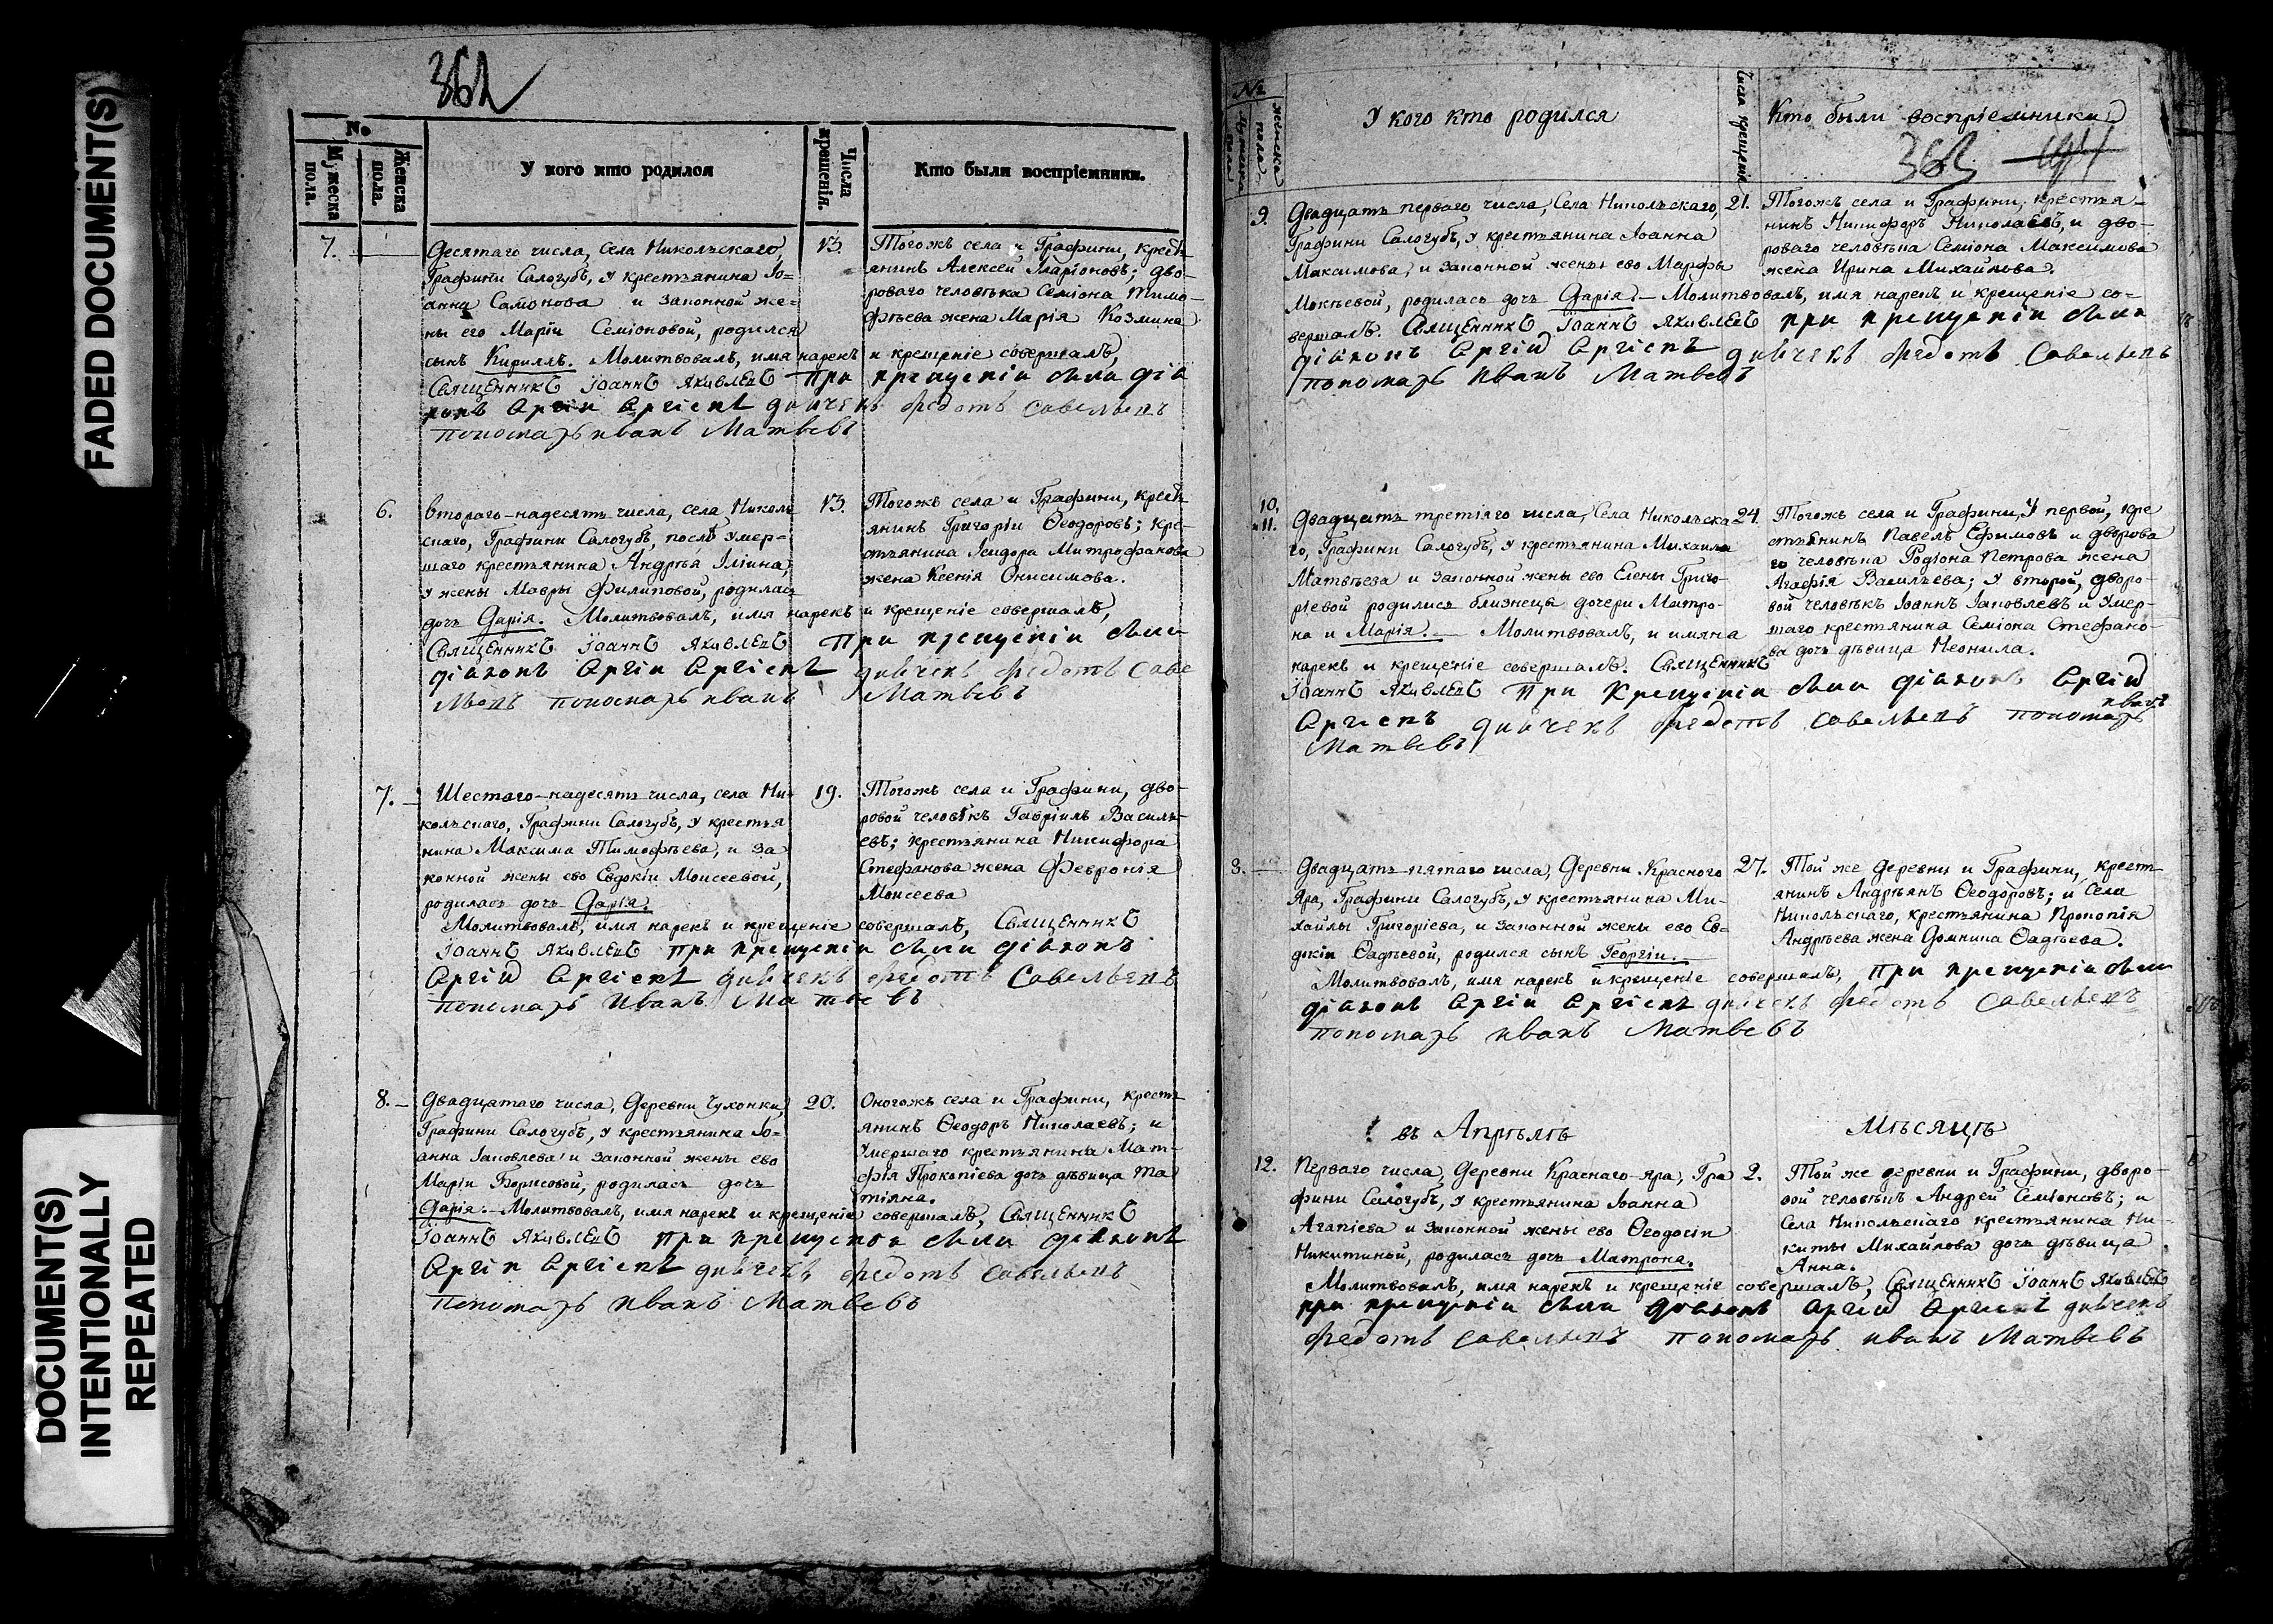 FADED DOCUMENT(S)
DOCUMENT(S)
INTENTIONALLY
REPEATED
362
№
Мужеска пола.
Женска пола.
У кого кто родился
Числа крещенія.
Кто были воспріемники.
7.
Десятаго числа, села Никольскаго,
Графини Салогубъ, у крестьянина Іо=
анна и законной же=
ны его Маріи Семіоновой, родился
сынъ Кириллъ. Молитвовалъ, имя нарекъ и крещеніе совершалъ,
Священникъ Іоаннъ Яковлевъ при крещеніи были діа
конъ дьячекъ Федотъ Савельевъ
пономарь иванъ Матвевъ
13.
Тогожъ села и Графини, крест
янинъ Алексей Иларіоновъ; дво-
роваго человѣка Семіона Тимо-
фѣева жена Марія Козмина
6.
Втораго-надесять числа, села Николь
скаго, Графини Салогубъ, послѣ умер=
шаго крестьянина Андрѣя Іліина,
у жены Мавры Филиповой, родилась
дочь Дарія. Молитвовалъ, имя нарекъ и крещеніе совершалъ,
Священникъ Іоаннъ Яковлевъ При крещеніи были
діаконъ дьячекъ Федотъ Саве
льевъ пономарь иванъ Матвевъ
13.
Тогожъ села и Графини, крест
янинъ Григоріи Ѳеодоровъ; кре-
стьянина Исидора Митрофанова
жена Ксенія Онисимова.
7.
Шестаго-надесять числа, села Ни-
кольскаго, Графини Салогубъ, у крестья
нина Максима Тимофѣева, и за
конной жены ево Евдокіи Моисеевой,
родилась дочь Дарія.
Молитвовалъ, имя нарекъ и крещеніе совершалъ, Священникъ
Іоаннъ Яковлевъ при крещеніи были діаконъ
дьячекъ Федотъ Савельевъ
пономарь Иванъ Матвевъ
19.
Тогожъ села и Графини, дво-
ровой человѣкъ Гавріилъ Василь-
евъ; крестьянина Никифора
Стефанова жена Февронія
Моисеева
8.
Двадцатаго числа, Деревни Чухонки,
Графини Салогубъ, у крестьянина Іо=
анна Іаковлева и законной жены ево
Маріи Борисовой, родилась дочь
Дарія. Молитвовалъ, имя нарекъ и крещеніе совершалъ, Священникъ
Іоаннъ Яковлевъ при крещеніи были діаконъ
дьячекъ Федотъ Савельевъ
Пономарь Иванъ Матвевъ
20.
Оногожъ села и Графини, крест-
янинъ Ѳеодоръ Николаевъ; и
умершаго крестьянина Мат-
фія Прокопіева дочь дѣвица Та
тіяна.
№
Мужеска пола
женска пола
У кого кто родился
Числа крещенія
Кто были воспріемники
363
9.
Двадцать перваго числа, Села Никольскаго,
Графини Салогубъ, у крестьянина Іоанна
Максимова, и законной жены ево Марфы
Мокѣевой, родилась дочь Дарія. Молитвовалъ, имя нарекъ и крещеніе со-
вершалъ. Священникъ Іоаннъ Яковлевъ при крещеніи были
діаконъ дьячекъ Федотъ Савельевъ
пономарь иванъ Матвевъ
21.
Тогожъ села и Графини, крестья-
нинъ Никифоръ Николаевъ, и дво-
роваго человѣка Семіона Максимова
жена Ирина Михайлова.
10.
и 11.
Двадцать третіяго числа, Села Никольска
го, Графини Салогубъ, у крестьянина Михаила
Матвѣева и законной жены ево Елены Григо-
ріевой родилися близнецы дочери Матро-
на и Марія. Молитвовалъ, и имяна
нарекъ и крещеніе совершалъ. Священникъ
Іоаннъ Яковлевъ При Крещеніи были діаконъ
дьячекъ Федотъ Савельевъ пономарь иванъ
Матвевъ
24.
Тогожъ села и Графини, У первой, кре
стьянинъ Павелъ Ефимовъ и дворова
го человѣка Родіона Петрова жена
Агафія Васильева; у второй, дворо-
вой человѣкъ Іоаннъ Іаковлевъ и умер-
шаго крестьянина Семіона Стефано-
ва дочь дѣвица Неонила.
8.
Двадцать-пятаго числа, Деревни Краснаго
Яра, Графини Салогубъ, у крестьянина Ми-
хайлы Григоріева, и законной жены ево Ев=
докіи Ѳадѣевой, родился сынъ Георгіи.
Молитвовалъ, имя нарекъ и крещеніе совершалъ, При крещеніи были
діаконъ дьячекъ Федотъ Савельевъ
пономарь иванъ Матвевъ
27.
Той же деревни и Графини, крест-
янинъ Андрѣянъ Ѳеодоровъ; и Села
Никольскаго, крестьянина Прокопія
Андрѣева жена Домнина Ѳадѣева.
въ Апрѣлѣ Мѣсяцѣ
12.
Перваго числа, Деревни Краснаго-яра, Гра
фини Салогубъ, у крестьянина Іоанна
Агапіева и законной жены ево Ѳеодосіи
Никитиной, родилась дочь Матрона.
Молитвовалъ, имя нарекъ и крещеніе совершалъ, Священникъ Іоаннъ Яковлевъ
при крещеніи были діаконъ дьячекъ
Федотъ Савельевъ пономарь иванъ Матвевъ
2.
Той же деревни и Графини, дворо-
вой человѣкъ Андрей Семіоновъ; и
Села Никольскаго крестьянина Ни-
киты Михайлова дочь дѣвица
Анна.